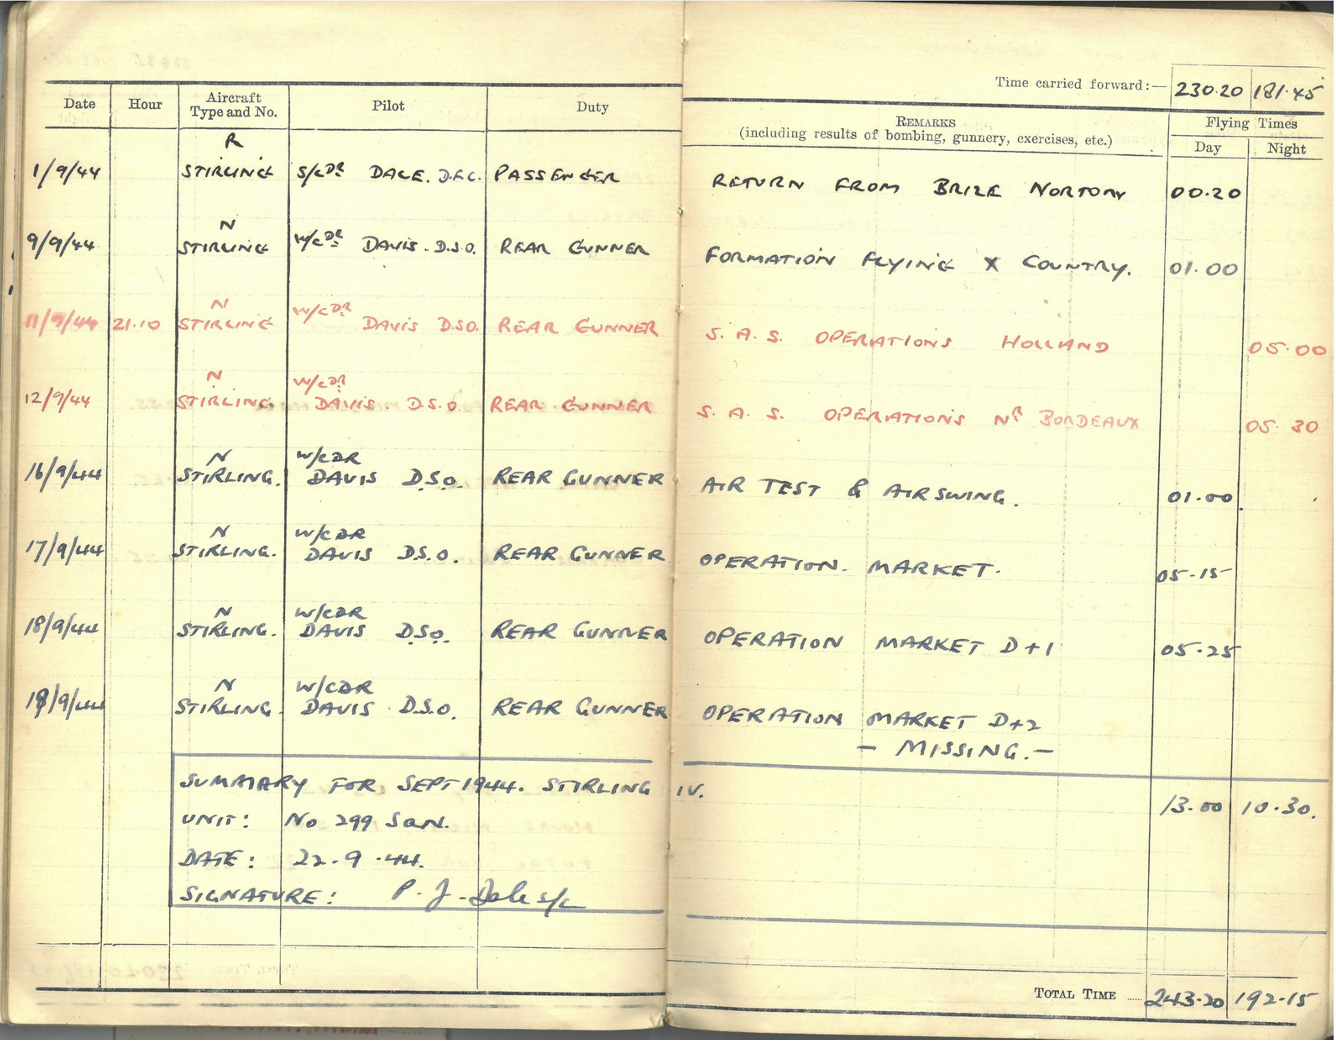 Time carried forward:— 230.20 181.45
Date Hour Aircraft Type and No. Pilot Duty REMARKS (including results of bombing, gunnery, exercises, etc.) Flying Times Day Night
1/9/44 R STIRLING S/LDR DALE. D.F.C. PASSENGER RETURN FROM BRIZE NORTON 00.20
9/9/44 N STIRLING W/CDR DAVIS. D.S.O. REAR GUNNER FORMATION FLYING X COUNTRY. 01.00
11/9/44 21.10 N STIRLING W/CDR DAVIS D.S.O. REAR GUNNER S.A.S. OPERATIONS HOLLAND 05.00
12/9/44 N STIRLING W/CDR DAVIS. D.S.O. REAR GUNNER S.A.S. OPERATIONS NR BORDEAUX 05.30
16/9/44 N STIRLING. W/CDR DAVIS D.S.O. REAR GUNNER AIR TEST & AIRSWING. 01.00
17/9/44 N STIRLING. W/CDR DAVIS D.S.O. REAR GUNNER OPERATION. MARKET. 05.15
18/9/44 N STIRLING. W/CDR DAVIS D.S.O. REAR GUNNER OPERATION MARKET D+1 05.25
19/9/44 N STIRLING. W/CDR DAVIS D.S.O. REAR GUNNER OPERATION MARKET D+2
— MISSING. —
SUMMARY FOR SEPT 1944. STIRLING IV. 13.00 10.30.
UNIT: No 299 SQN.
DATE: 22.9.44.
SIGNATURE: P. J. Dale S/L
TOTAL TIME .... 243.20 192.15